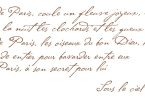 de Paris, coule un fleuve joyeux,
la nuit les clochards et les gueux
de Paris, les oiseaux du bon Dieu,
de entier pour bavarder entre eux
Paris, a son secret pour lui
Sous le ciel